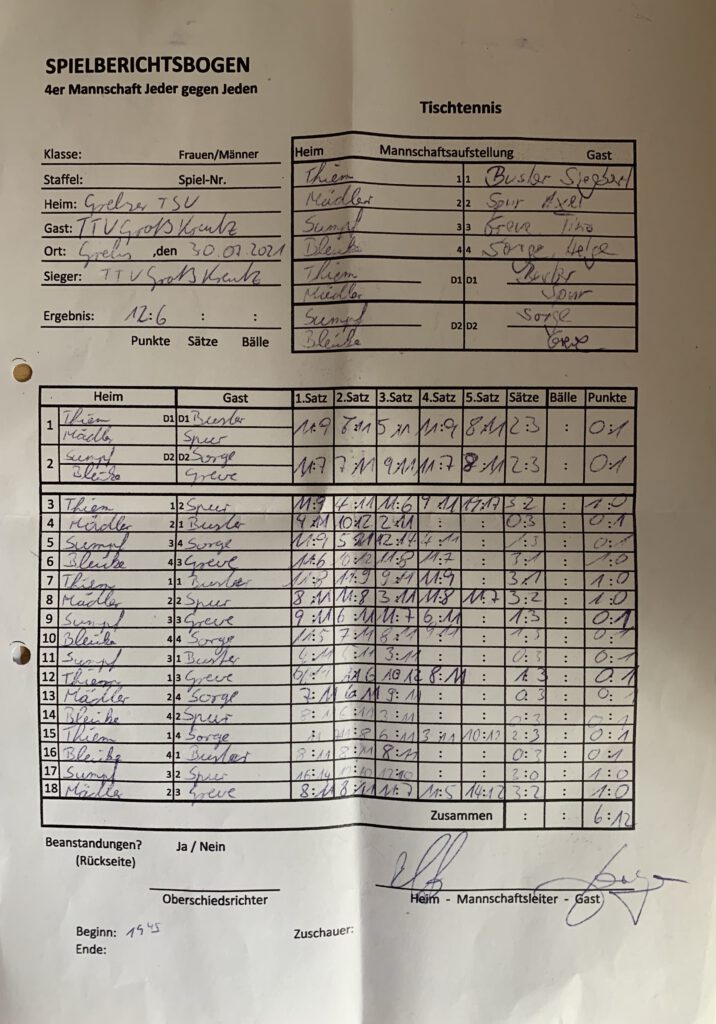 SPIELBERICHTSBOGEN
4er Mannschaft Jeder gegen Jeden
Tischtennis
Klasse: Frauen/Männer
Staffel: Spiel-Nr.
Heim: TSV
Gast: TTV Groß Kreutz
Ort: ,den 30.07.2021
Sieger: TTV Groß Kreutz
Ergebnis: 12:6 : :
Punkte Sätze Bälle
Heim Mannschaftsaufstellung Gast
Thiem 1 1 Buster
Mädler 2 2 Spur Axel
Sumpf 3 3 Greve Tino
Bleicke 4 4 Sorge
Thiem D1 D1 Buster
Mädler Spur
Sumpf D2 D2 Sorge
Bleicke Greve
Heim Gast 1.Satz 2.Satz 3.Satz 4.Satz 5.Satz Sätze Bälle Punkte
1 Thiem D1 D1 Buster 11:9 5:11 11:9 8:11 2:3 : 0:1
Mädler Spur
2 Sumpf D2 D2 Sorge 11:7 7:11 9:11 11:7 8:11 2:3 : 0:1
Bleicke Greve
3 Thiem 1 2 Spur 11:9 4:11 11:6 9:11 3:2 : 1:0
4 Mädler 2 1 Buster 10:12 2:11 : : 0:3 : 0:1
5 Sumpf 3 4 Sorge 11:9 1:3 : 0:1
6 Bleicke 4 3 Greve 11:6 10:12 11:8 11:7 : 3:1 : 1:0
7 Thiem 1 1 Buster 11:8 11:9 9:11 11:9 : 3:1 : 1:0
8 Mädler 2 2 Spur 8:11 11:8 3:11 11:8 11:7 3:2 : 1:0
9 Sumpf 3 3 Greve 9:11 6:11 11:7 6:11 : 1:3 : 0:1
10 Bleicke 4 4 Sorge 11:5 7:11 8:11 9:11 : 1:3 : 0:1
11 Sumpf 3 1 Buster 6:11 3:11 : : 0:3 : 0:1
12 Thiem 1 3 Greve 10:12 8:11 : 1:3 : 0:1
13 Mädler 2 4 Sorge 7:11 9:11 : : 0:3 : 0:1
14 Bleicke 4 2 Spur : : 0:3 : 0:1
15 Thiem 1 4 Sorge 11:8 6:11 3:11 10:12 2:3 : 0:1
16 Bleicke 4 1 Buster 8:11 8:11 8:11 : : 0:3 : 0:1
17 Sumpf 3 2 Spur 16:14 12:10 12:10 : : 3:0 : 1:0
18 Mädler 2 3 Greve 8:11 8:11 11:7 11:5 14:12 3:2 : 1:0
Zusammen : : 6:12
Beanstandungen? Ja / Nein
(Rückseite)
Oberschiedsrichter
Heim - Mannschaftsleiter - Gast
Beginn: 19 45
Zuschauer:
Ende: